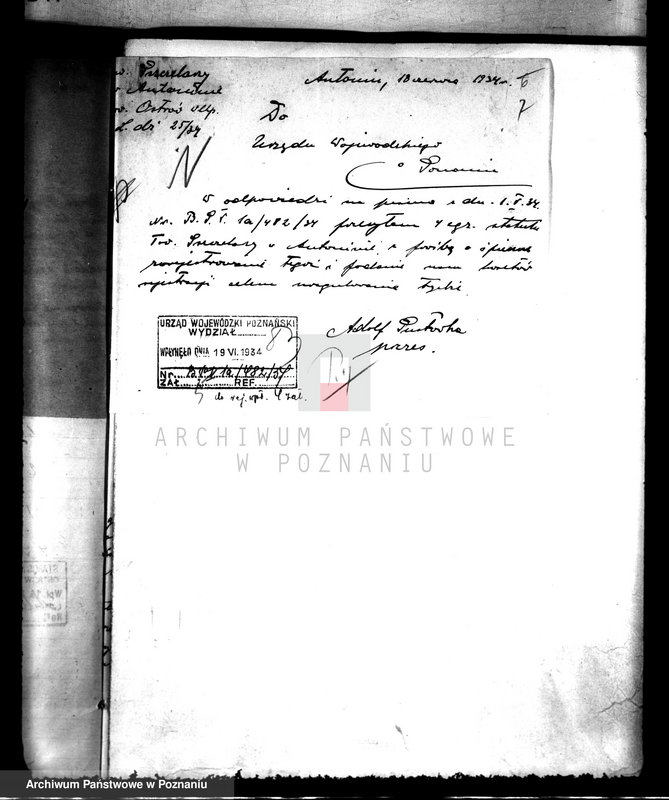 Tow. Pszczelarzy
w Antoninie
pow. Ostrów Wlkp.
L. dz. 25/34
Antonin, 18 czerwca 1934 r.
6
7
Do
Urzędu Wojewódzkiego
w Poznaniu
N
W odpowiedzi na pismo z dn. 1.V.34.
Nr. B.P.I. 1a/482/34 przesyłam 4 egz. statutu
Tow. Pszczelarzy w Antoninie z prośbą o
zarejestrowanie tegoż i podanie nam kosztów
rejestracji celem uregulowania
Adolf
prezes.
URZĄD WOJEWÓDZKI POZNAŃSKI
WYDZIAŁ
WPŁYNĘŁO DNIA 19 VI. 1934
Nr. 1a/482/34
ZAŁ. REF.
do rej. wpł. 4 zał.
ARCHIWUM PAŃSTWOWE
W POZNANIU
Archiwum Państwowe w Poznaniu